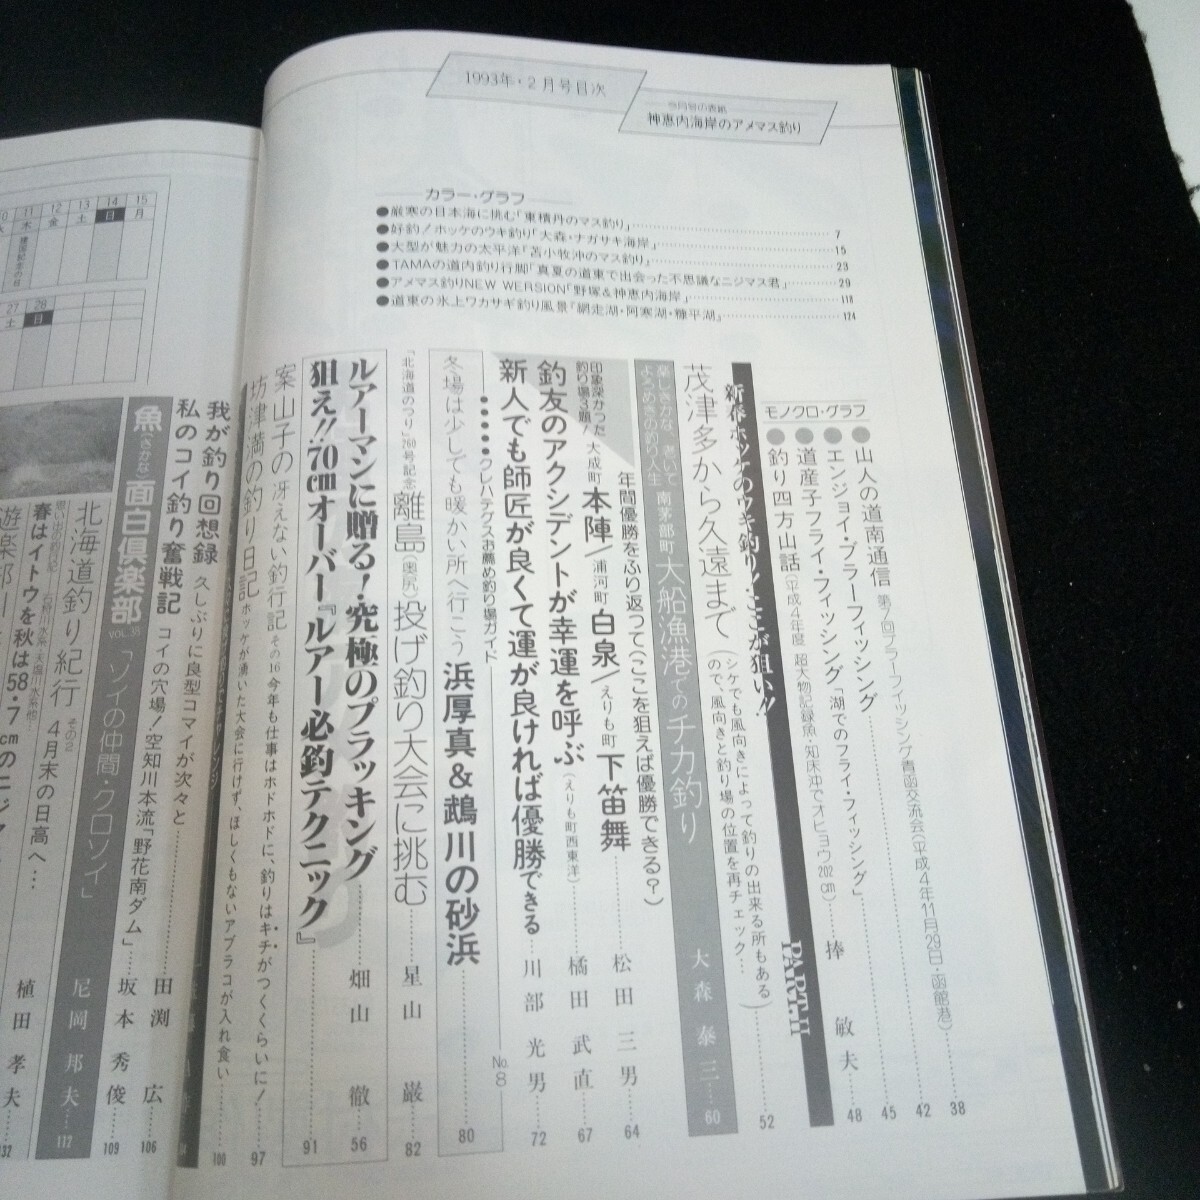 1993年・2月号目次
今月号の表紙
神恵内海岸のアメマス釣り
カラー・グラフ
●厳寒の日本海に挑む「東積丹のマス釣り」 7
●好釣!ホッケのウキ釣り「大森・ナガサキ海岸」 15
●大型が魅力の太平洋「苫小牧沖のマス釣り」 23
●TAMAの道内釣り行脚「真夏の道東で出会った不思議なニジマス君」 29
●アメマス釣りNEW WERSION「野塚&神恵内海岸」 118
●道東の氷上ワカサギ釣り風景「網走湖・阿寒湖・糠平湖」 124
モノクロ・グラフ
●山人の道南通信 第7回ブラーフィッシング青函交流会(平成4年11月29日・函館港) 38
●エンジョイ・ブラーフィッシング 42
●道産子フライ・フィッシング「湖でのフライ・フィッシング」 45
●釣り四方山話(平成4年度 超大物記録魚・知床沖でオヒョウ202cm) 捧 敏夫 48
新春ホッケのウキ釣り!ここが狙い!! PART.II
茂津多から久遠まで(シケでも風向きによって釣りの出来る所もあるので、風向きと釣り場の位置を再チェック… 52
楽しきかな 老いて
よろめきの釣り人生
南茅部町 大船漁港でのチカ釣り 大森泰三 60
年間優勝をふり返って(ここを狙えば優勝できる?)
印象深かった釣り場3題!
大成町 本陣/浦河町 白泉/えりも町 下笛舞 松田三男 64
釣友のアクシデントが幸運を呼ぶ(えりも町西東洋) 橘田武直 67
新人でも師匠が良くて運が良ければ優勝できる 川部光男 72
●●●●●クレハテグスお薦め釣り場ガイド No.8
冬場は少しでも暖かい所へ行こう 浜厚真&鵡川の砂浜 80
「北海道のつり」260号記念 離島(奥尻)投げ釣り大会に挑む 星山 巌 82
ルアーマンに贈る!究極のプラッキング 畑山 徹 56
狙え!!70cmオーバー『ルアー必釣テクニック』 91
案山子の冴えない釣行記 その16 今年も仕事はホドホドに、釣りはキチがつくくらいに! 97
坊津満の釣り日記 ホッケが湧いた大会に行けず、ほしくもないアブラコが入れ食い 100
我が釣り回想録 久しぶりに良型コマイが次々と 田渕 広 106
私のコイ釣り奮戦記 コイの穴場!空知川本流「野花南ダム」 坂本秀俊 109
魚(さかな)面白倶楽部 VOL.38 「ソイの仲間・クロソイ」 尼岡邦夫 112
北海道釣り紀行 その2 4月末の日高へ… 植田孝夫 132
春はイトウを秋は58・7cmのニジマ
遊楽部
11 12 13 14 15
木 金 土 日 月
建国記念の日
27 28
土 日